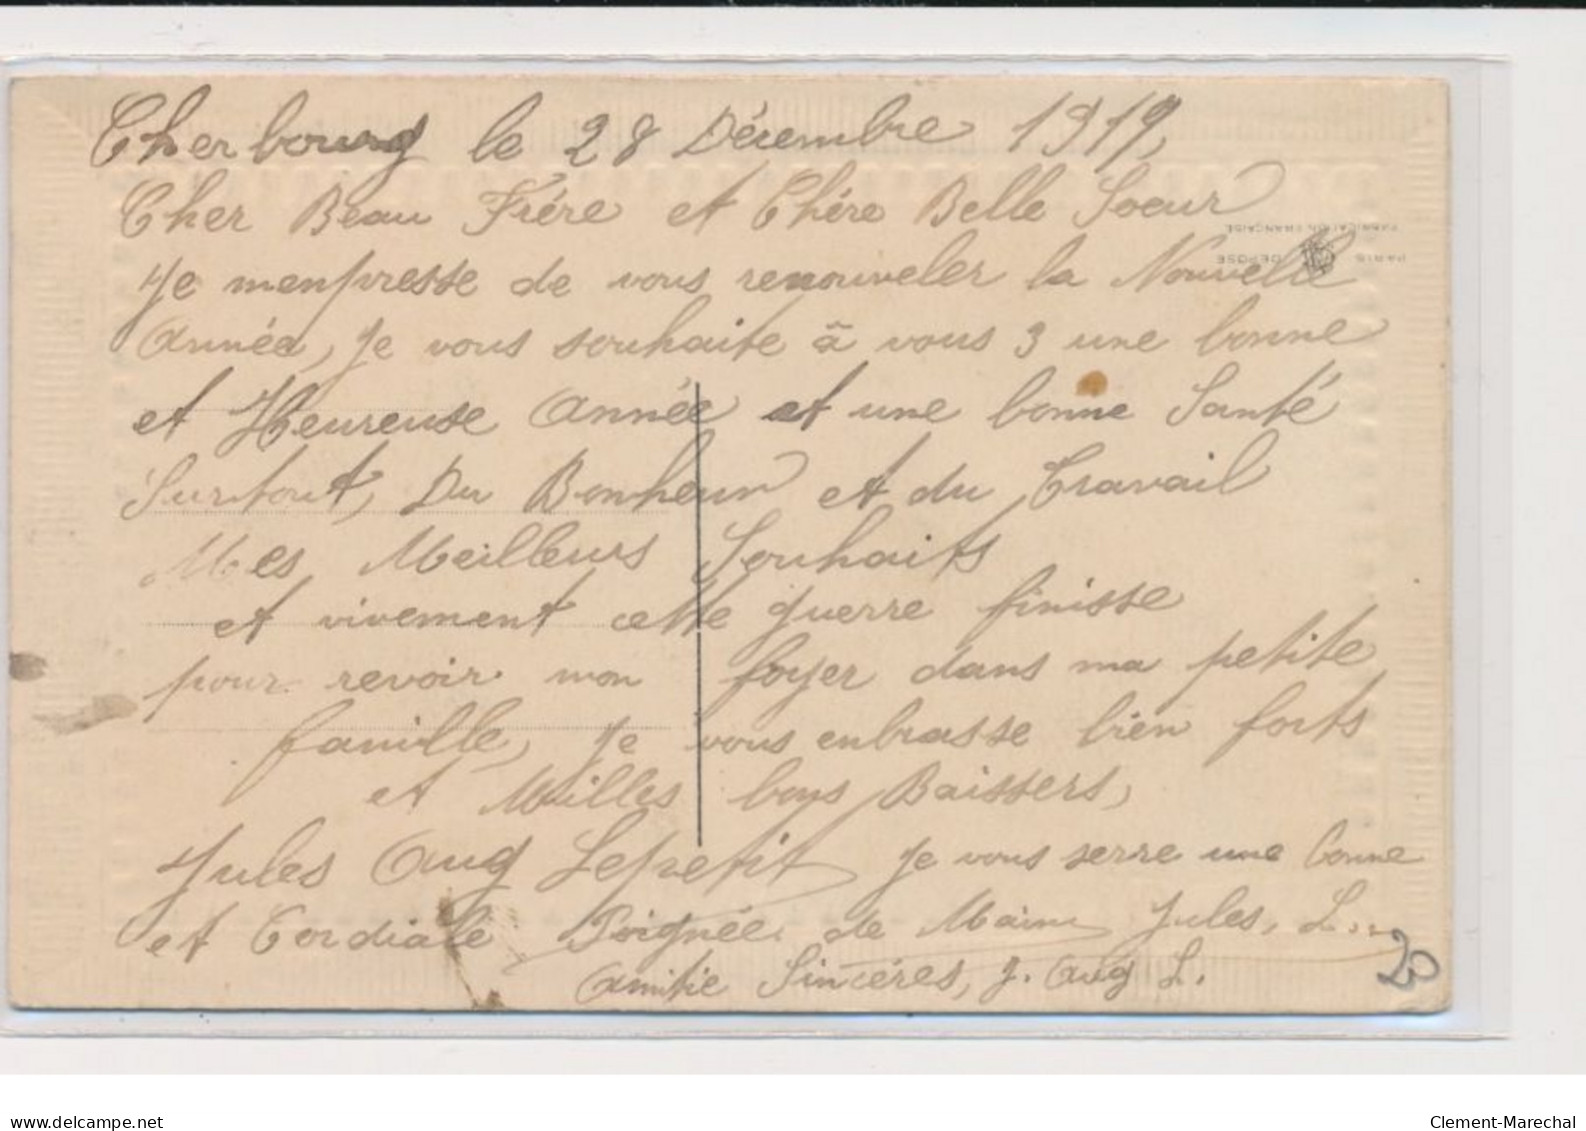 Cherbourg le 28 Décembre 1917,
Cher Beau Frére et Chére Belle Soeur
FABRICATION FRANÇAISE
PARIS DEPOSE
Je menpresse de vous renouveler la Nouvelle
Année, je vous souhaite à vous 3 une bonne
et Heureuse Année et une bonne Santé
Surtout, Du Bonheur et du Travail
Mes Meilleurs Souhaits
et vivement cette guerre finisse
pour revoir mon foyer dans ma petite
famille, je vous enbrasse bien forts
et Milles bons Baissers,
Jules Aug Lepetit je vous serre une bonne
et Cordiale Poignée de Main Jules, L...
Amitie Sincéres, J. Aug L.
20
www.delcampe.net
Clement-Marechal